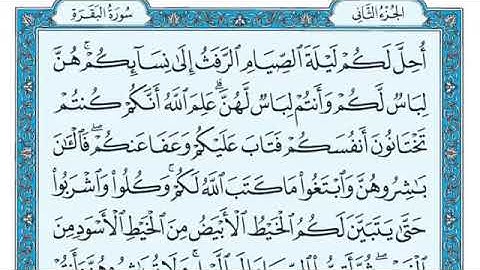 الجزء الثاني
سورة البقرة
أُحِلَّ لَكُمْ لَيْلَةَ ٱلصِّيَامِ ٱلرَّفَثُ إِلَىٰ نِسَآئِكُمْ ۚ هُنَّ
لِبَاسٌ لَّكُمْ وَأَنتُمْ لِبَاسٌ لَّهُنَّ ۗ عَلِمَ ٱللَّهُ أَنَّكُمْ كُنتُمْ
تَخْتَانُونَ أَنفُسَكُمْ فَتَابَ عَلَيْكُمْ وَعَفَا عَنكُمْ ۖ فَٱلْـَٰٔنَ
بَـٰشِرُوهُنَّ وَٱبْتَغُوا۟ مَا كَتَبَ ٱللَّهُ لَكُمْ ۚ وَكُلُوا۟ وَٱشْرَبُوا۟
حَتَّىٰ يَتَبَيَّنَ لَكُمُ ٱلْخَيْطُ ٱلْأَبْيَضُ مِنَ ٱلْخَيْطِ ٱلْأَسْوَدِ مِنَ